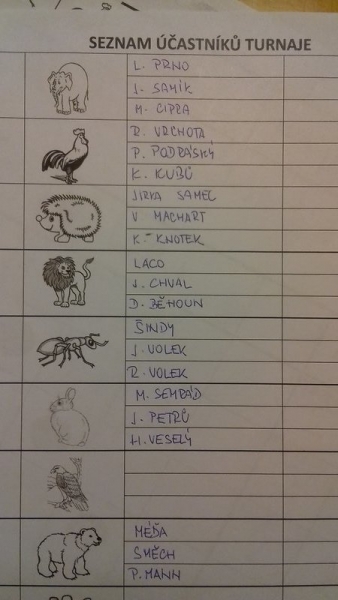 SEZNAM ÚČASTNÍKŮ TURNAJE
L. PRNO
J. SAMÍK
M. CIPRA
R. VRCHOTA
P. PODRÁSKÝ
K. KUBŮ
JIRKA SAMEC
V. MACHART
K. KNOTEK
LACO
J. CHVAL
D. BĚHOUN
ŠINDY
J. VOLEK
R. VOLEK
M. SEMRÁD
J. PETRŮ
H. VESELÝ
MÉĎA
SMĚCH
P. MANN